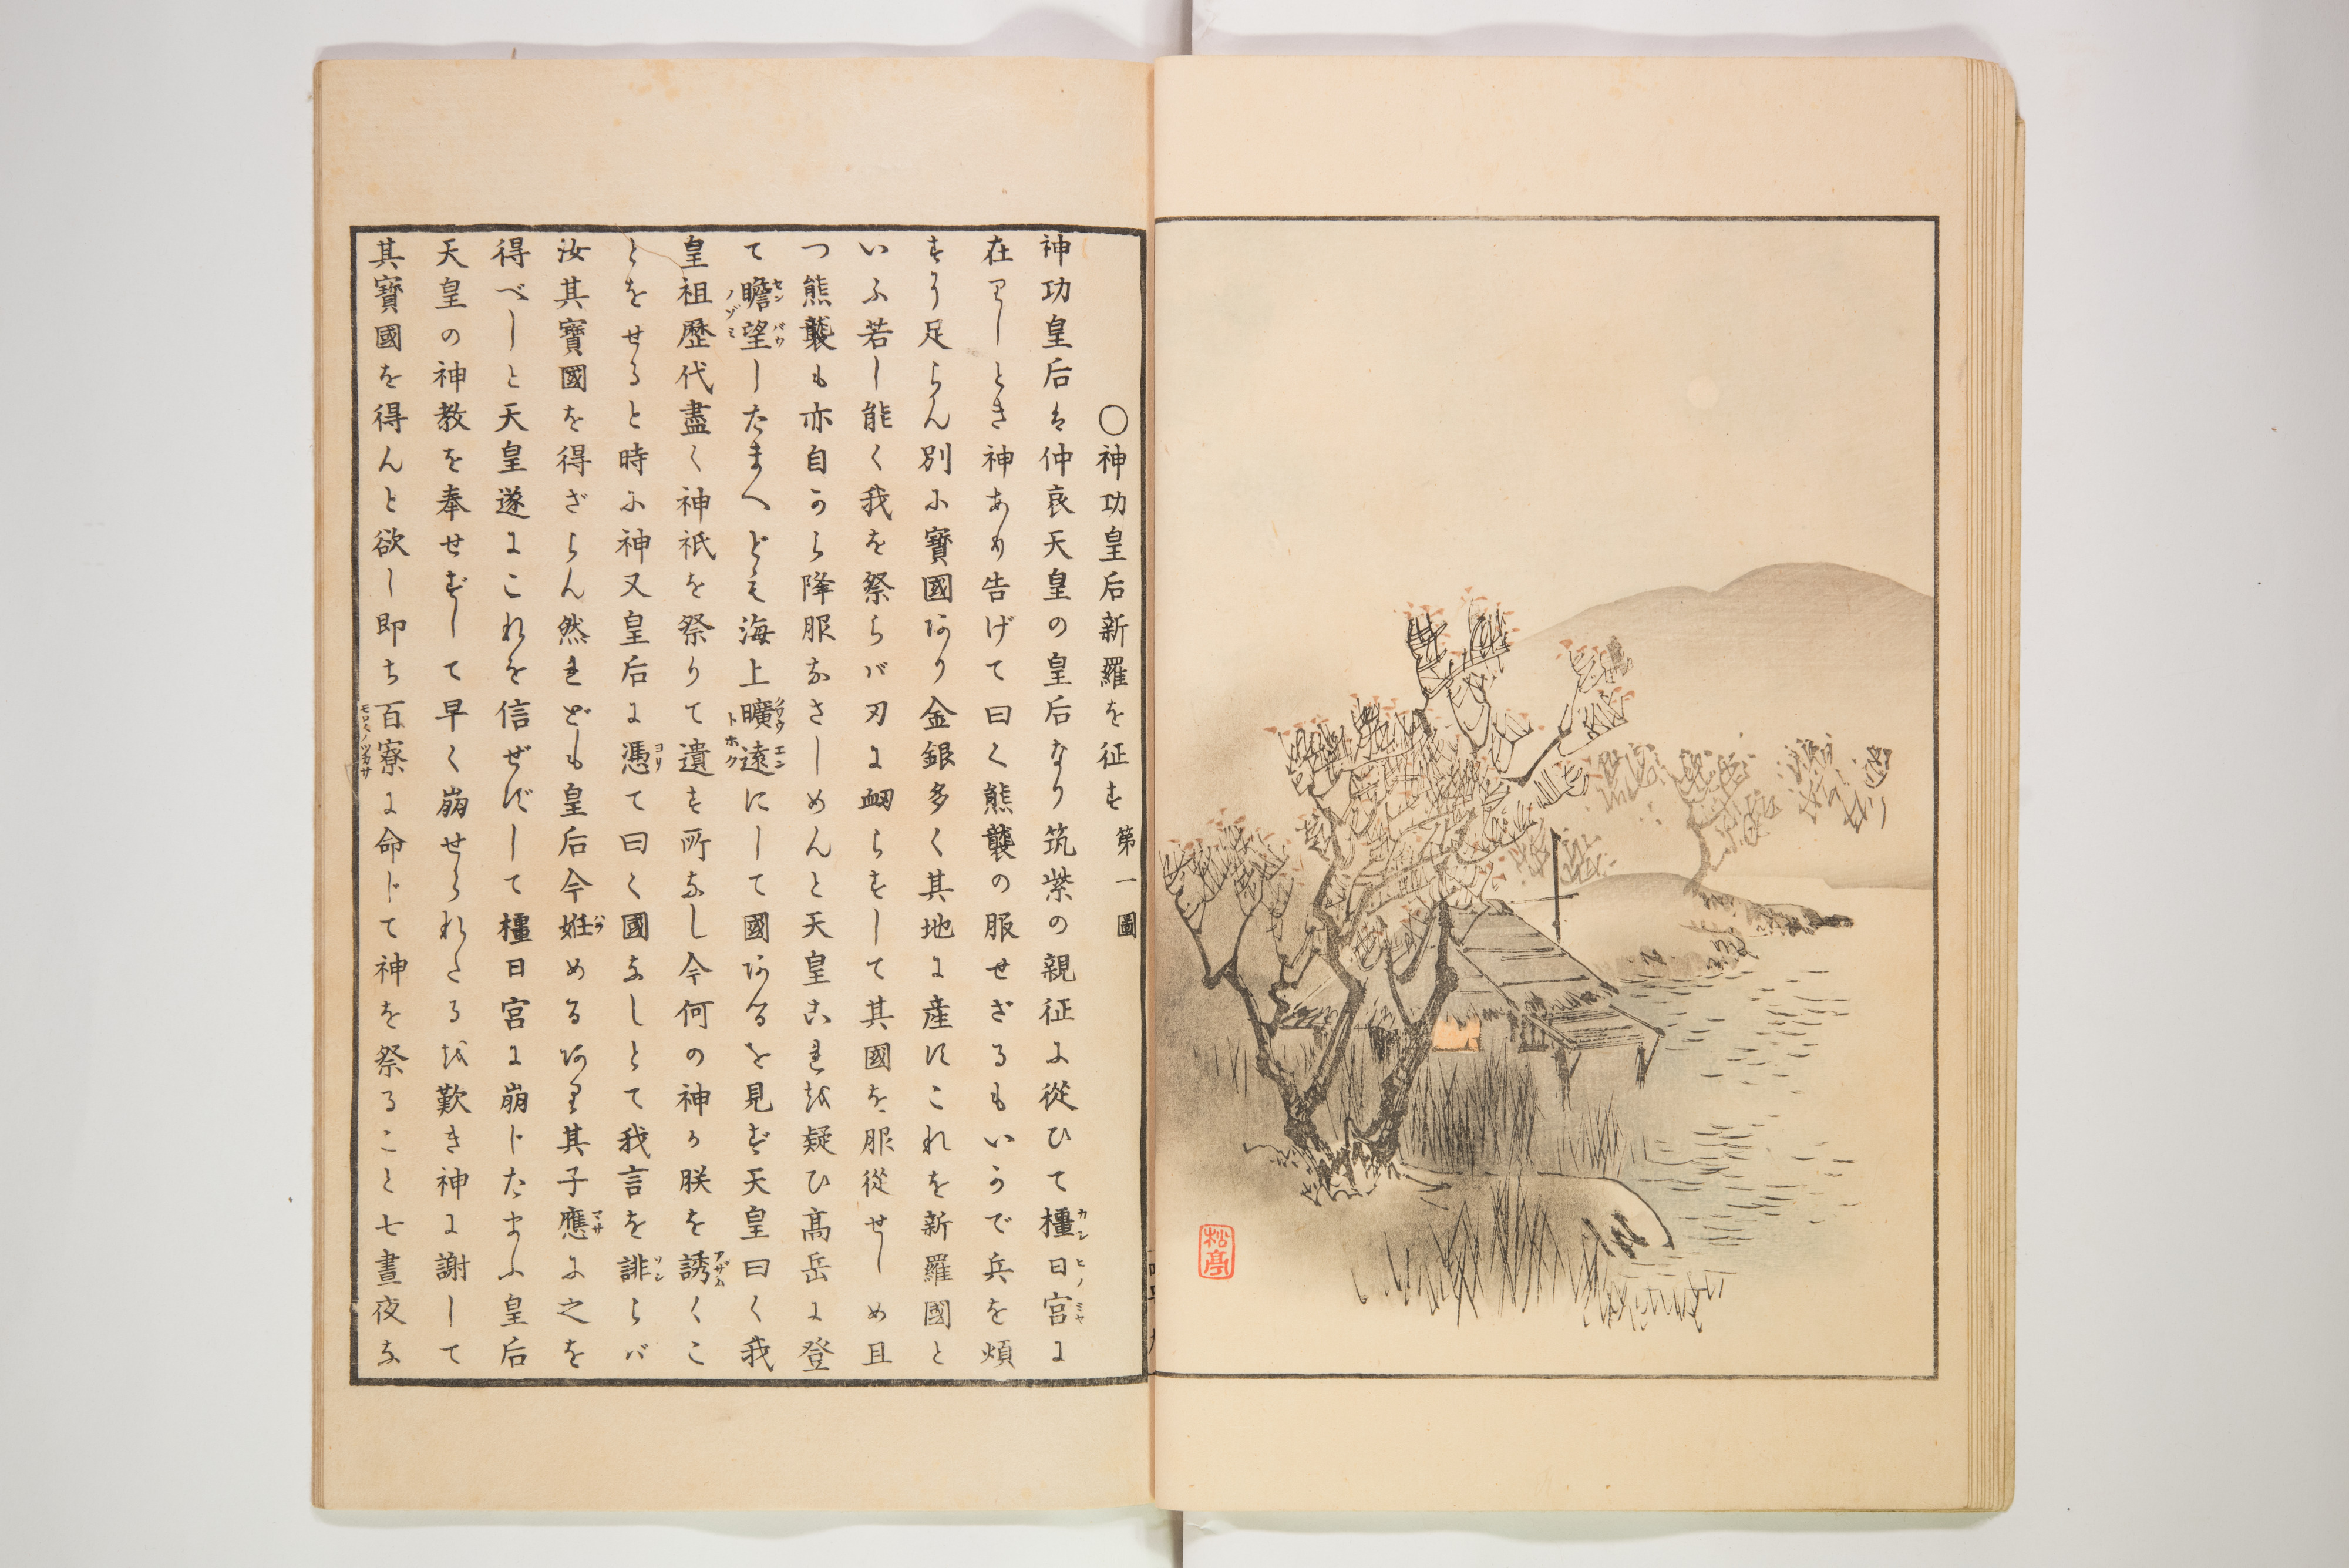 〇神功皇后新羅を征す 第一圖
神功皇后は仲哀天皇の皇后なり筑紫の親征に從ひて橿日宮に
在りしとき神あり告げて曰く熊襲の服せざるもいかで兵を煩
すに足らん別に寶國あり金銀多く其地に産すこれを新羅國と
いふ若し能く我を祭らバ刃に衂らずして其國を服從せしめ且
つ熊襲も亦自から降服なさしめんと天皇これを疑ひ高岳に登
て瞻望したまへども海上曠遠にして國あるを見ず天皇曰く我
皇祖歷代盡く神祇を祭りて遺す所なし今何の神か朕を誘くこ
とをせると時に神又皇后に憑て曰く國なしとて我言を誹らバ
汝其寶國を得ざらん然れども皇后今姙めるあり其子應に之を
得べしと天皇遂にこれを信ぜずして橿日宮に崩じたまふ皇后
天皇の神教を奉せずして早く崩せられたるを歎き神に謝して
其寶國を得んと欲し即ち百寮に命じて神を祭ること七晝夜な
松亭